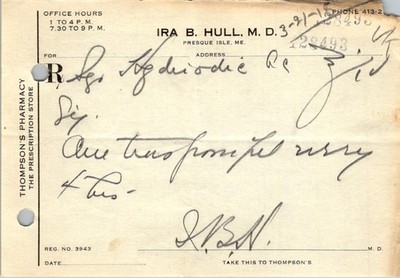 OFFICE HOURS
1 TO 4 P.M.
7.30 TO 9 P.M.
PHONE 413-2
IRA B. HULL, M. D.
PRESQUE ISLE, ME.
3-21-
128493
128493
FOR ADDRESS
R
Sig.
One teaspoonful every
4 hrs
I.B.H.
REG. NO. 3943
M. D.
DATE
TAKE THIS TO THOMPSON'S
THOMPSON'S PHARMACY
THE PRESCRIPTION STORE